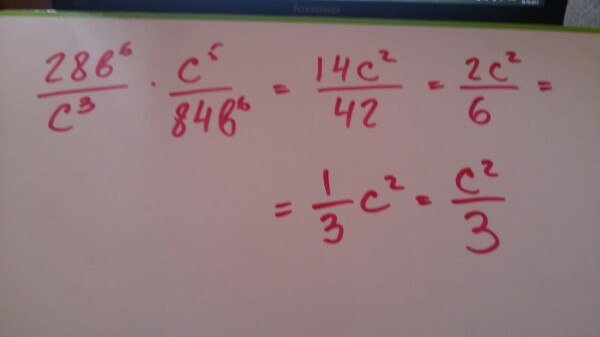 lenovo
28b⁶/c³ · c⁵/84b⁶ = 14c²/42 = 2c²/6 =
= 1/3 c² = c²/3